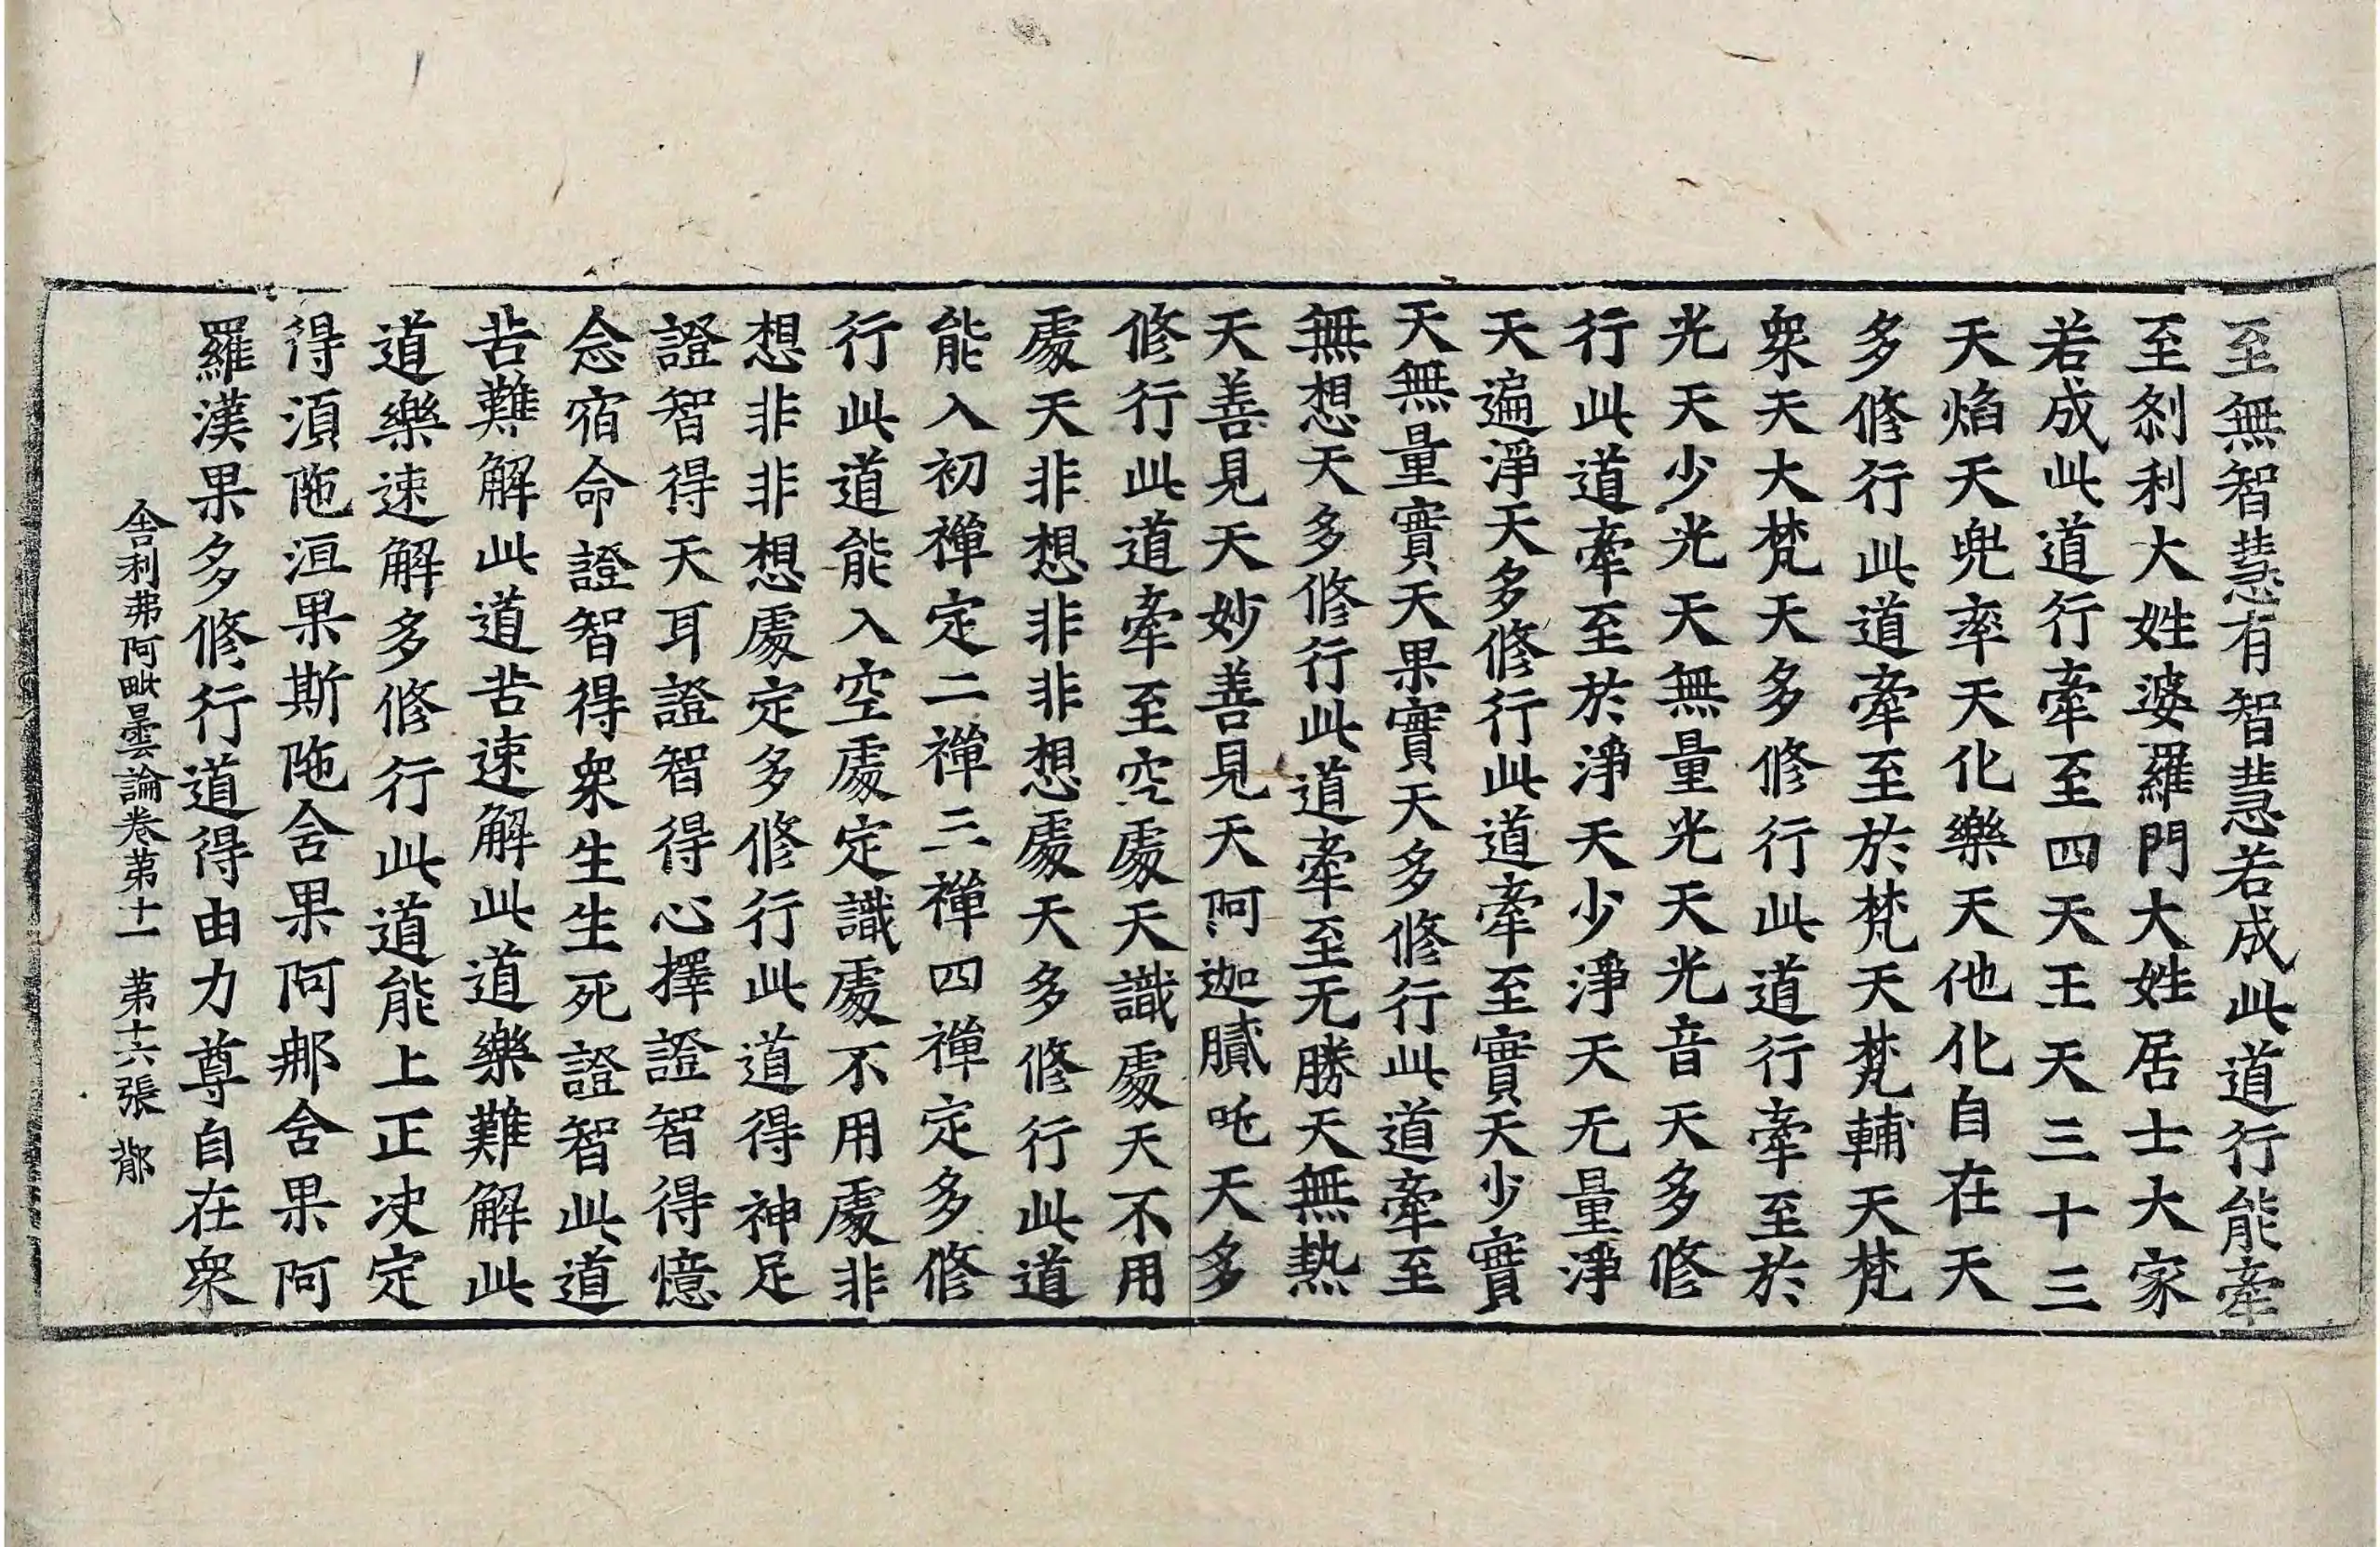 至無智慧有智慧若成此道行能牽
至刹利大姓婆羅門大姓居士大家
若成此道行牽至四天王天三十三
天焰天兜率天化樂天他化自在天
多修行此道牽至於梵天梵輔天梵
衆天大梵天多修行此道行牽至於
光天少光天無量光天光音天多修
行此道牽至於淨天少淨天无量淨
天遍淨天多修行此道牽至實天少實
天無量實天果實天多修行此道牽至
無想天多修行此道牽至无勝天無熱
天善見天妙善見天阿迦膩吒天多
修行此道牽至空處天識處天不用
處天非想非非想處天多修行此道
能入初禪定二禪三禪四禪定多修
行此道能入空處定識處不用處非
想非非想處定多修行此道得神足
證智得天耳證智得心擇證智得憶
念宿命證智得衆生生死證智此道
苦難解此道苦速解此道樂難解此
道樂速解多修行此道能上正决定
得湏陁洹果斯陁舍果阿那舍果阿
羅漢果多修行道得由力尊自在衆
舍利弗阿毗曇論卷第十一 第十六張